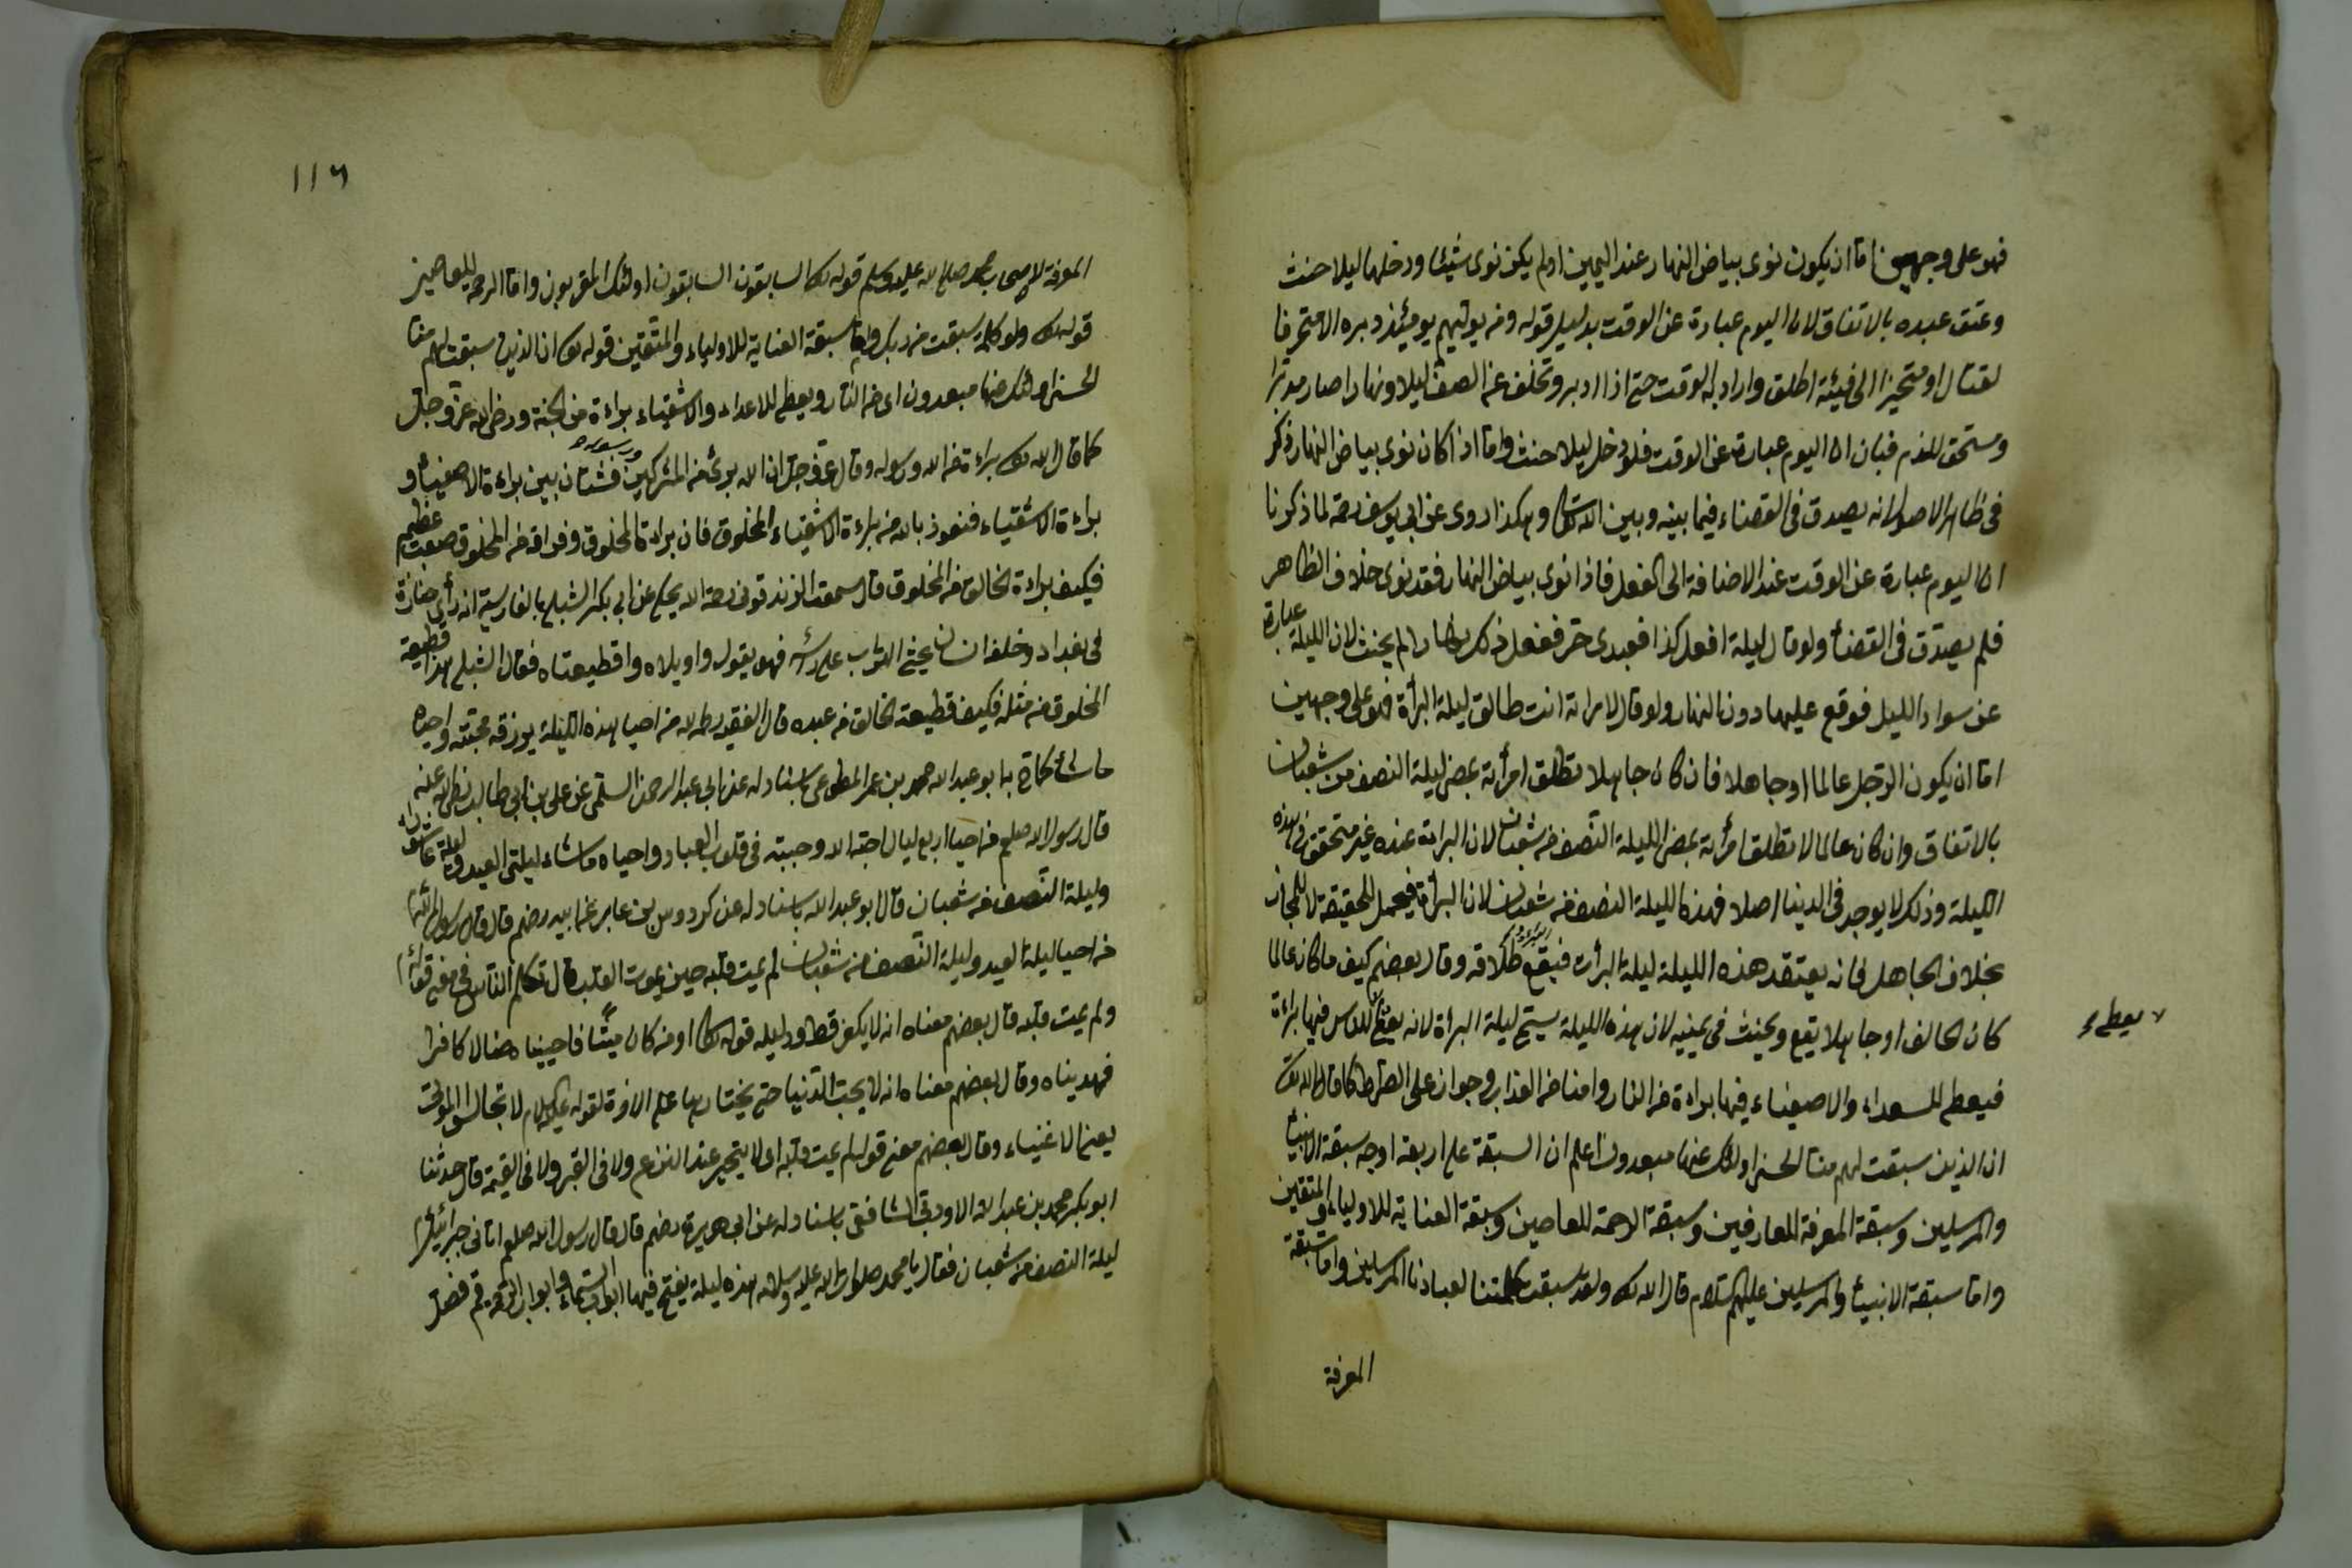 فهو على وجهين اما ان يكون نوى بياض النهار عند اليمين او لم يكن نوى شيئا ودخلها ليلا حنث
وعتق عبده بالاتفاق لان اليوم عبارة عن الوقت بدليل قوله ومن يولهم يومئذ دبره الا متحرفا
لقتال او متحيزا الى فيئة اطلق واراد به الوقت حتى اذا ادبر وتخلف عن الصف ليلا ونهارا صار مدبرا
ومستحق للذم فبان ان اليوم عبارة عن الوقت فلو دخل ليلا حنث واما اذا كان نوى بياض النهار ذكر
في ظاهر الاصول انه يصدق في القضاء فيما بينه وبين الله تعالى وهكذا روى عن ابي يوسف رحمه لما ذكرنا
ان اليوم عبارة عن الوقت عند الاضافة الى الفعل فاذا نوى بياض النهار فقد نوى خلاف الظاهر
فلم يصدق في القضأ ولو قال ليلة افعل كذا فعبدى حر ففعل ذلك نهارا لم يحنث لان الليلة عبارة
عن سواد الليل فوقع عليها دون النهار ولو قال لامراته انت طالق ليلة البرأة فهو على وجهين
اما ان يكون الرجل عالما او جاهلا فان كان جاهلا تطلق امرأته بمضى ليلة النصف من شعبان
بالاتفاق وان كان عالما لا تطلق امرأته بمضى الليلة النصف من شعبان لان البراة عنده غير متحقق في هذه
الليلة وذلك لا يوجد في الدنيا اصلا فهذه الليلة النصف من شعبان لان البرأة فيحمل للحقيقة لا للمجاز
بخلاف الجاهل لانه يعتقد هذه الليلة ليلة البرأت فيقع طلاقه وقال بعضهم كيف ما كان عالما
كان الحالف او جاهلا يقع ويحنث في يمينه لان هذه الليلة يسمى ليلة البراة لانه يقع للناس فيها براءة
يعطى
فيعطى للسعداء والاصفياء فيها براءة من النار وامنا من العذاب وجواز على الصراط كما قال الله تعالى
ان الذين سبقت لهم منا الحسنى اولئك عنها مبعدون اعلم ان السبقة على اربعة اوجه سبقة الانبيأ
والمرسلين وسبقة المعرفة للعارفين وسبقة الرحمة للعاصين وسبقة العناية للاولياء والمتقين
واما سبقة الانبيأ والمرسلين عليهم السلام قال الله تعالى ولقد سبقت كلمتنا لعبادنا المرسلين واما سبقة
المعرفة
١١٦
المعرفة لامة محمد صلى الله عليه وسلم قوله تعالى السابقون السابقون اولئك المقربون واما الرحمة للعاصين
قوله تعالى ولولا كلمة سبقت من ربك واما سبقة العناية للاولياء والمتقين قوله تعالى ان الذين سبقت لهم منا
الحسنى اولئك عنها مبعدون اى من النار ويعطى للاعداء والاشقياء براءة من الجنة ورضى الله عز وجل
كما قال الله تعالى براءة من الله ورسوله وقال عز وجل ان الله برئ من المشركين ورسوله فشتان بين براءة الاصفياء و
براءة الاشقياء فنعوذ بالله من براءة الاشقياء المخلوق فان براءة المخلوق وفراقه من المخلوق صعب عظيم
فكيف براءة الخالق من المخلوق قال سمعت الزندقوتى رحمه الله يحكى عن ابي بكر الشبلى بالفارسية انه رأى جنازة
في بغداد وخلفه انسان يحثى التراب على رأسه فهو يقول واويلاه واقطيعتاه فقال الشبلى هذا قطيعة
المخلوق من مثله فكيف قطيعة الخالق من عبده قال الفقيه رحمه الله من احيا هذه الليلة يرزقه محبته واحياه
ما شاء كما ابو عبد الله محمد بن عمر المطوعى باسناد له عن ابي عبد الرحمن السلمى عن على بن ابي طالب رضى الله عنه
قال رسول الله صلعم من احيا اربع ليال احبه الله وحببته في قلوب العباد واحياه ما شاء ليلتى العيد وليلة عاشوراء
وليلة النصف من شعبان قال ابو عبد الله باسناد له عن كردوس بن عابر عن ابيه رضهم قال قال رسول الله
من احيا ليلة العيد وليلة النصف من شعبان لم يمت قلبه حين يموت القلب قال تكلم الناس في معنى قوله
ولم يمت قلبه قال بعضهم معناه انه لا يكفر قط ودليله قوله تعالى او من كان ميتا فاحييناه ضالا كافرا
فهديناه وقال بعضهم معناه انه لا يحب الدنيا حتى يختارها على الاخرة لقوله عليه السلام لا تجالس الموتى
يعنى الاغنياء وقال بعضهم معنى قوله لم يمت قلبه اى لا يتحير عند النزع ولا في القبر ولا في القيمة قال حدثنا
ابو بكر محمد بن عبد الله الاودنى الشافعى باسناد له عن ابي هريرة رضهم قال قال رسول الله صلعم اتانى جبرائيل
ليلة النصف من شعبان فقال يا محمد صلوات الله عليه وسلامه هذه ليلة يفتح فيها ابواب السماء وابواب الرحمة قم فصل